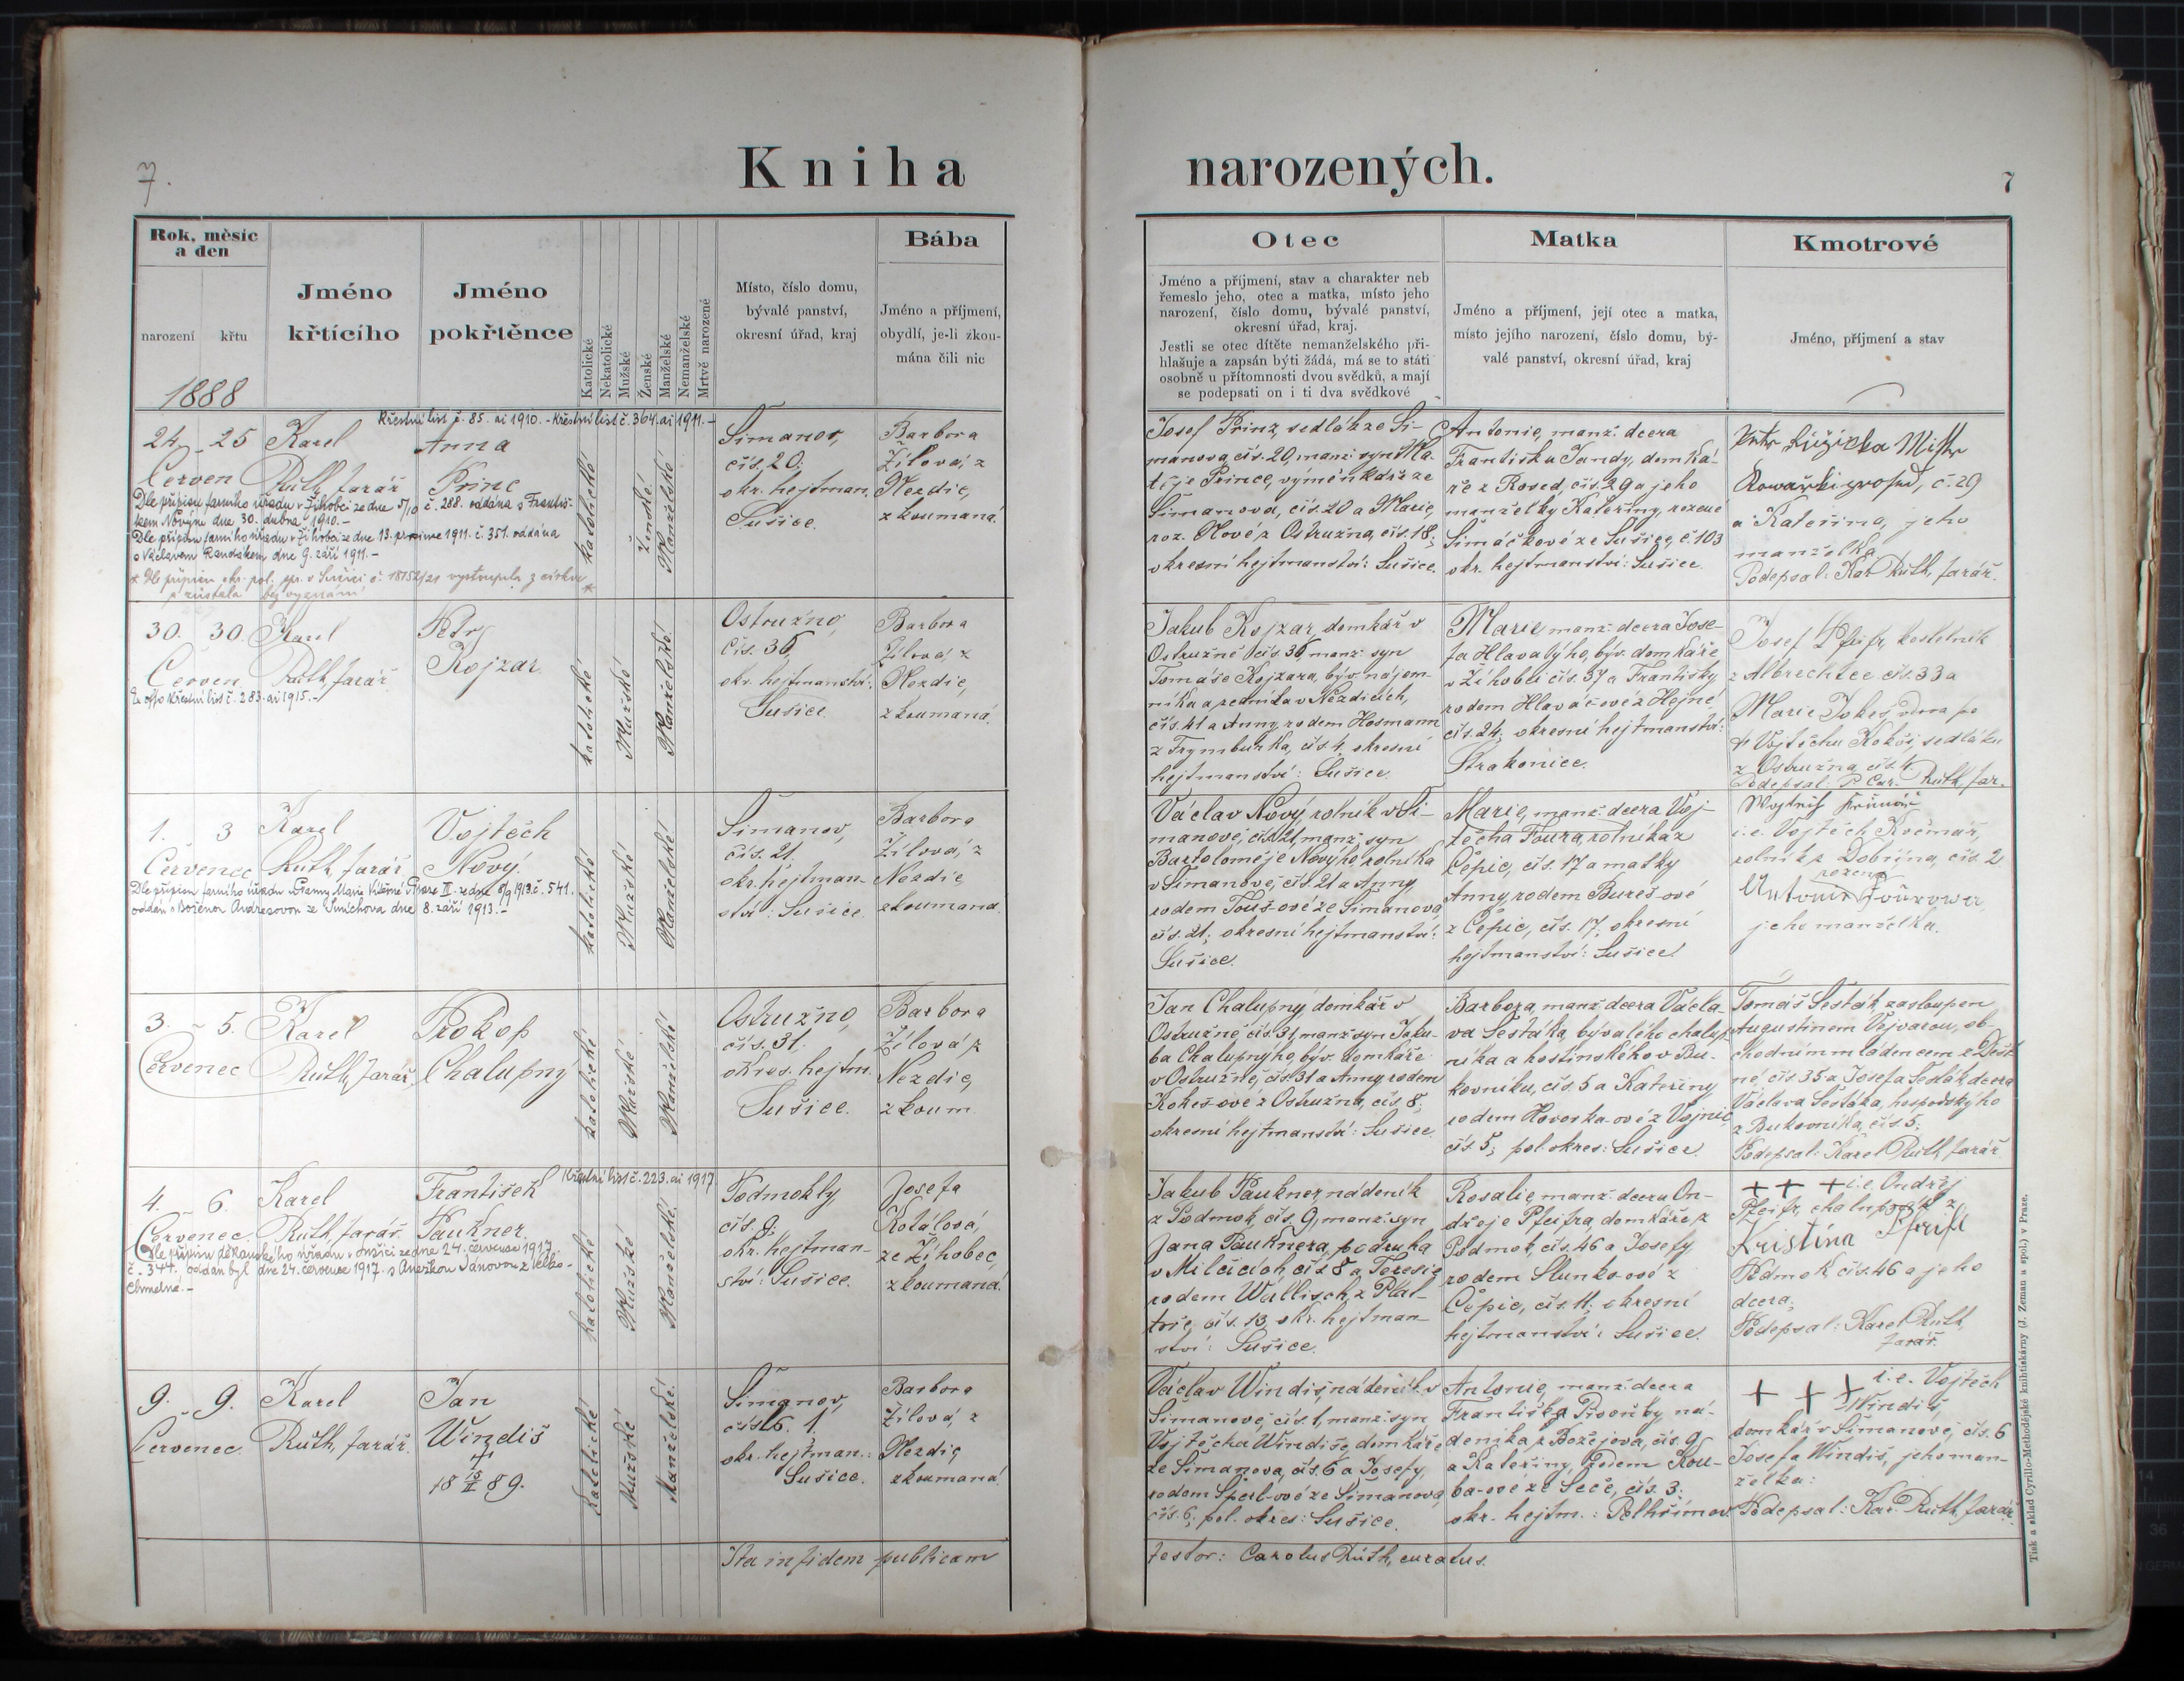 7.
Kniha
narozených.
7
Rok, měsíc
a den
narození
křtu
1888
Jméno
křtícího
Jméno
pokřtěnce
Katolické
Nekatolické
Mužské
Ženské
Manželské
Nemanželské
Mrtvě narozené
Místo, číslo domu,
bývalé panství,
okresní úřad, kraj
Bába
Jméno a příjmení,
obydlí, je-li zkou-
mána čili nic
Otec
Jméno a příjmení, stav a charakter neb
řemeslo jeho, otec a matka, místo jeho
narození, číslo domu, bývalé panství,
okresní úřad, kraj.
Jestli se otec dítěte nemanželského při-
hlašuje a zapsán býti žádá, má se to státi
osobně u přítomnosti dvou svědků, a mají
se podepsati on i ti dva svědkové
Matka
Jméno a příjmení, její otec a matka,
místo jejího narození, číslo domu, bý-
valé panství, okresní úřad, kraj
Kmotrové
Jméno, příjmení a stav
Křestní list č. 85. ai 1910. - Křestní list č. 364. ai 1911. -
24. 25
Červen
Karel
Ruth, farář
Anna
Princ
Dle přípisu farního úřadu v Žihobci ze dne 5/10 č. 288. oddána s Františ-
kem Novým dne 30. dubna 1910. -
Dle přípisu farního úřadu v Žihobci ze dne 13. prosince 1911. č. 351. oddána
s Václavem Randákem dne 9. září 1911. -
* Dle přípisu okr. pol. spr. v Sušici č. 18152/21 vystoupila z církve
a zůstala bez vyznání
katolické
*
Ženské.
Manželské
Šimanov,
čís. 20;
okr. hejtman.
Sušice.
Barbora
Žílová, z
Nezdic,
zkoumaná.
Josef Prinz, sedlák ze Ši-
manova, čís. 20, manž. syn Ma-
těje Prince, výměnkáře ze
Šimanova, čís. 20 a Marie,
roz. Nové z Ostružna, čís. 18;
okresní hejtmanství: Sušice.
Antonie, manž. dcera
Františka Jandy, domká-
ře z Rosed, čís. 29 a jeho
manželky Kateřiny, rozené
Šimáčkové ze Sušice, č. 103
okr. hejtmanství: Sušice.
č. 29
a Kateřina, jeho
manželka.
Podepsal: Kar. Ruth, farář.
30. 30.
Červen.
Karel
Ruth, farář.
Ex offo křestní list č. 283. ai 1915. -
Petr
Kojzar.
katolické
Mužské
Manželské.
Ostružno,
čís. 36,
okr. hejtmanství:
Sušice.
Barbora
Žílová, z
Nezdic,
zkoumaná.
Jakub Kojzar, domkář v
Ostružně čís. 36, manž. syn
Tomáše Kojzara, býv. nájem-
níka a zedníka v Nezdicích,
čís. 41 a Anny, rodem Hosmann
z Frymburka, čís. 4, okresní
hejtmanství: Sušice.
Marie, manž. dcera Jose-
fa Hlavatýho, býv. domkáře
v Žihobci čís. 37 a Františky,
rodem Hlaváčové z Hejné,
čís. 24; okresní hejtmanství:
Strakonice.
Josef Pfeifr, kostelník
z Albrechtec čís. 33 a
Marie Kokeš, vdova po
† Vojtěchu Kokeši, sedláku
z Ostružna, čís. 4.
Podepsal: P. Car. Ruth, far.
1. 3
Červenec
Karel
Ruth, farář
Vojtěch
Nový.
Dle přípisu farního úřadu u Panny Marie Vítězné v Praze III. ze dne 8/9 1913. č. 541.
oddán s Boženou Andresovou ze Smíchova dne 8. září 1913. -
katolické
Mužské
Manželské.
Šimanov,
čís. 21.
okr. hejtman-
ství: Sušice.
Barbora
Žílová, z
Nezdic
zkoumaná
Václav Nový, rolník v Ši-
manově, čís. 21, manž. syn
Bartoloměje Nového, rolníka
v Šimanově, čís. 21 a Anny,
rodem Touš-ové ze Šimanova
čís. 21; okresní hejtmanství:
Sušice.
Marie, manž. dcera Voj-
těcha Foura, rolníka z
Čepic, čís. 17 a matky
Anny, rodem Bureš-ové
z Čepic, čís. 17; okresní
hejtmanství: Sušice.
i.e. Vojtěch Krčmář,
rolník z Dobřína, čís. 2
rozená
Antonie Fourowa,
jeho manželka.
3. - 5.
Červenec
Karel
Ruth, farář
Prokop
Chalupný
katolické
Mužské
Manželské
Ostružno,
čís. 31.
okres. hejtm.
Sušice.
Barbora
Žílová z
Nezdic,
zkoum.
Jan Chalupný domkář v
Ostružně čís. 31, manž. syn Jaku-
ba Chalupnýho, býv. domkáře
v Ostružně, čís. 31 a Anny, rodem
Kokeš-ové z Ostružna, čís. 8;
okresní hejtmanství: Sušice.
Barbora, manž. dcera Václa-
va Šestáka, bývalého chalup-
níka a hostinského v Bu-
kovníku, čís. 5 a Kateřiny
rodem Havorka-ové z Vojnic,
čís. 5; pol. okres: Sušice.
Tomáš Šesták, zastoupen
Augustinem Vojvarou, ob-
chodním mládencem z Dešt-
né, čís. 35 a Josefa Šesták, dcera
Václava Šestáka, hospodskýho
z Bukovníka, čís. 5;
Podepsal: Karel Ruth, farář
Křestní list č. 223. ai 1917.
4. - 6.
Červenec.
Karel
Ruth, farář.
František
Paukner.
Dle přípisu děkanského úřadu v Sušici ze dne 24. července 1917.
č. 344. oddán byl dne 24. července 1917. s Anežkou Jánovou z Velko-
Chmelné. -
katolické
Mužské
Manželské.
Podmokly,
čís. 9;
okr. hejtman-
ství: Sušice.
Josefa
Kotálová,
ze Žihobec,
zkoumaná.
Jakub Paukner, nádeník
z Podmok, čís. 9, manž. syn
Jana Pauknera, podruha
v Milčicích, čís. 8 a Teresie
rodem Wallisch, z Plat-
toře, čís. 13, okr. hejtman-
ství: Sušice.
Rosalie, manž. dcera On-
dřeje Pfeifra, domkáře z
Podmok, čís. 46 a Josefy
rodem Slunko-ové z
Čepic, čís. 11; okresní
hejtmanství: Sušice.
+ + + i.e. Ondřej
Pfeifr, chalupník z
Kristína Pfeifl
Podmok, čís. 46 a jeho
dcera.
Podepsal: Karel Ruth,
farář.
9. - 9.
Červenec.
Karel
Ruth, farář.
Jan
Windiš
†
18 89.
katolické
Mužské
Manželské.
Šimanov,
čís. 1.
okr. hejtman.:
Sušice.
Barbora
Žílová, z
Nezdic,
zkoumaná
Václav Windiš, nádeník v
Šimanově, čís. 1, manž. syn
Vojtěcha Windiše, domkáře
ze Šimanova, čís. 6 a Josefy,
rodem Šperl-ové ze Šimanova,
čís. 6; pol. okres: Sušice.
Antonie, manž. dcera
Františka Pivoňky ná-
deníka z Božejova, čís. 9
a Kateřiny, rodem Kou-
ba-ové ze Seče, čís. 3;
okr. hejtm.: Pelhřimov.
+ + + i.e. Vojtěch
Windiš,
domkář v Šimanově, čís. 6
Josefa Windiš, jeho man-
želka:
Podepsal: Kar. Ruth, farář.
Ita in fidem publicam
testor: Carolus Ruth, curatus.
Tisk a sklad Cyrillo-Methodějské knihtiskárny (J. Zeman a spol.) v Praze.